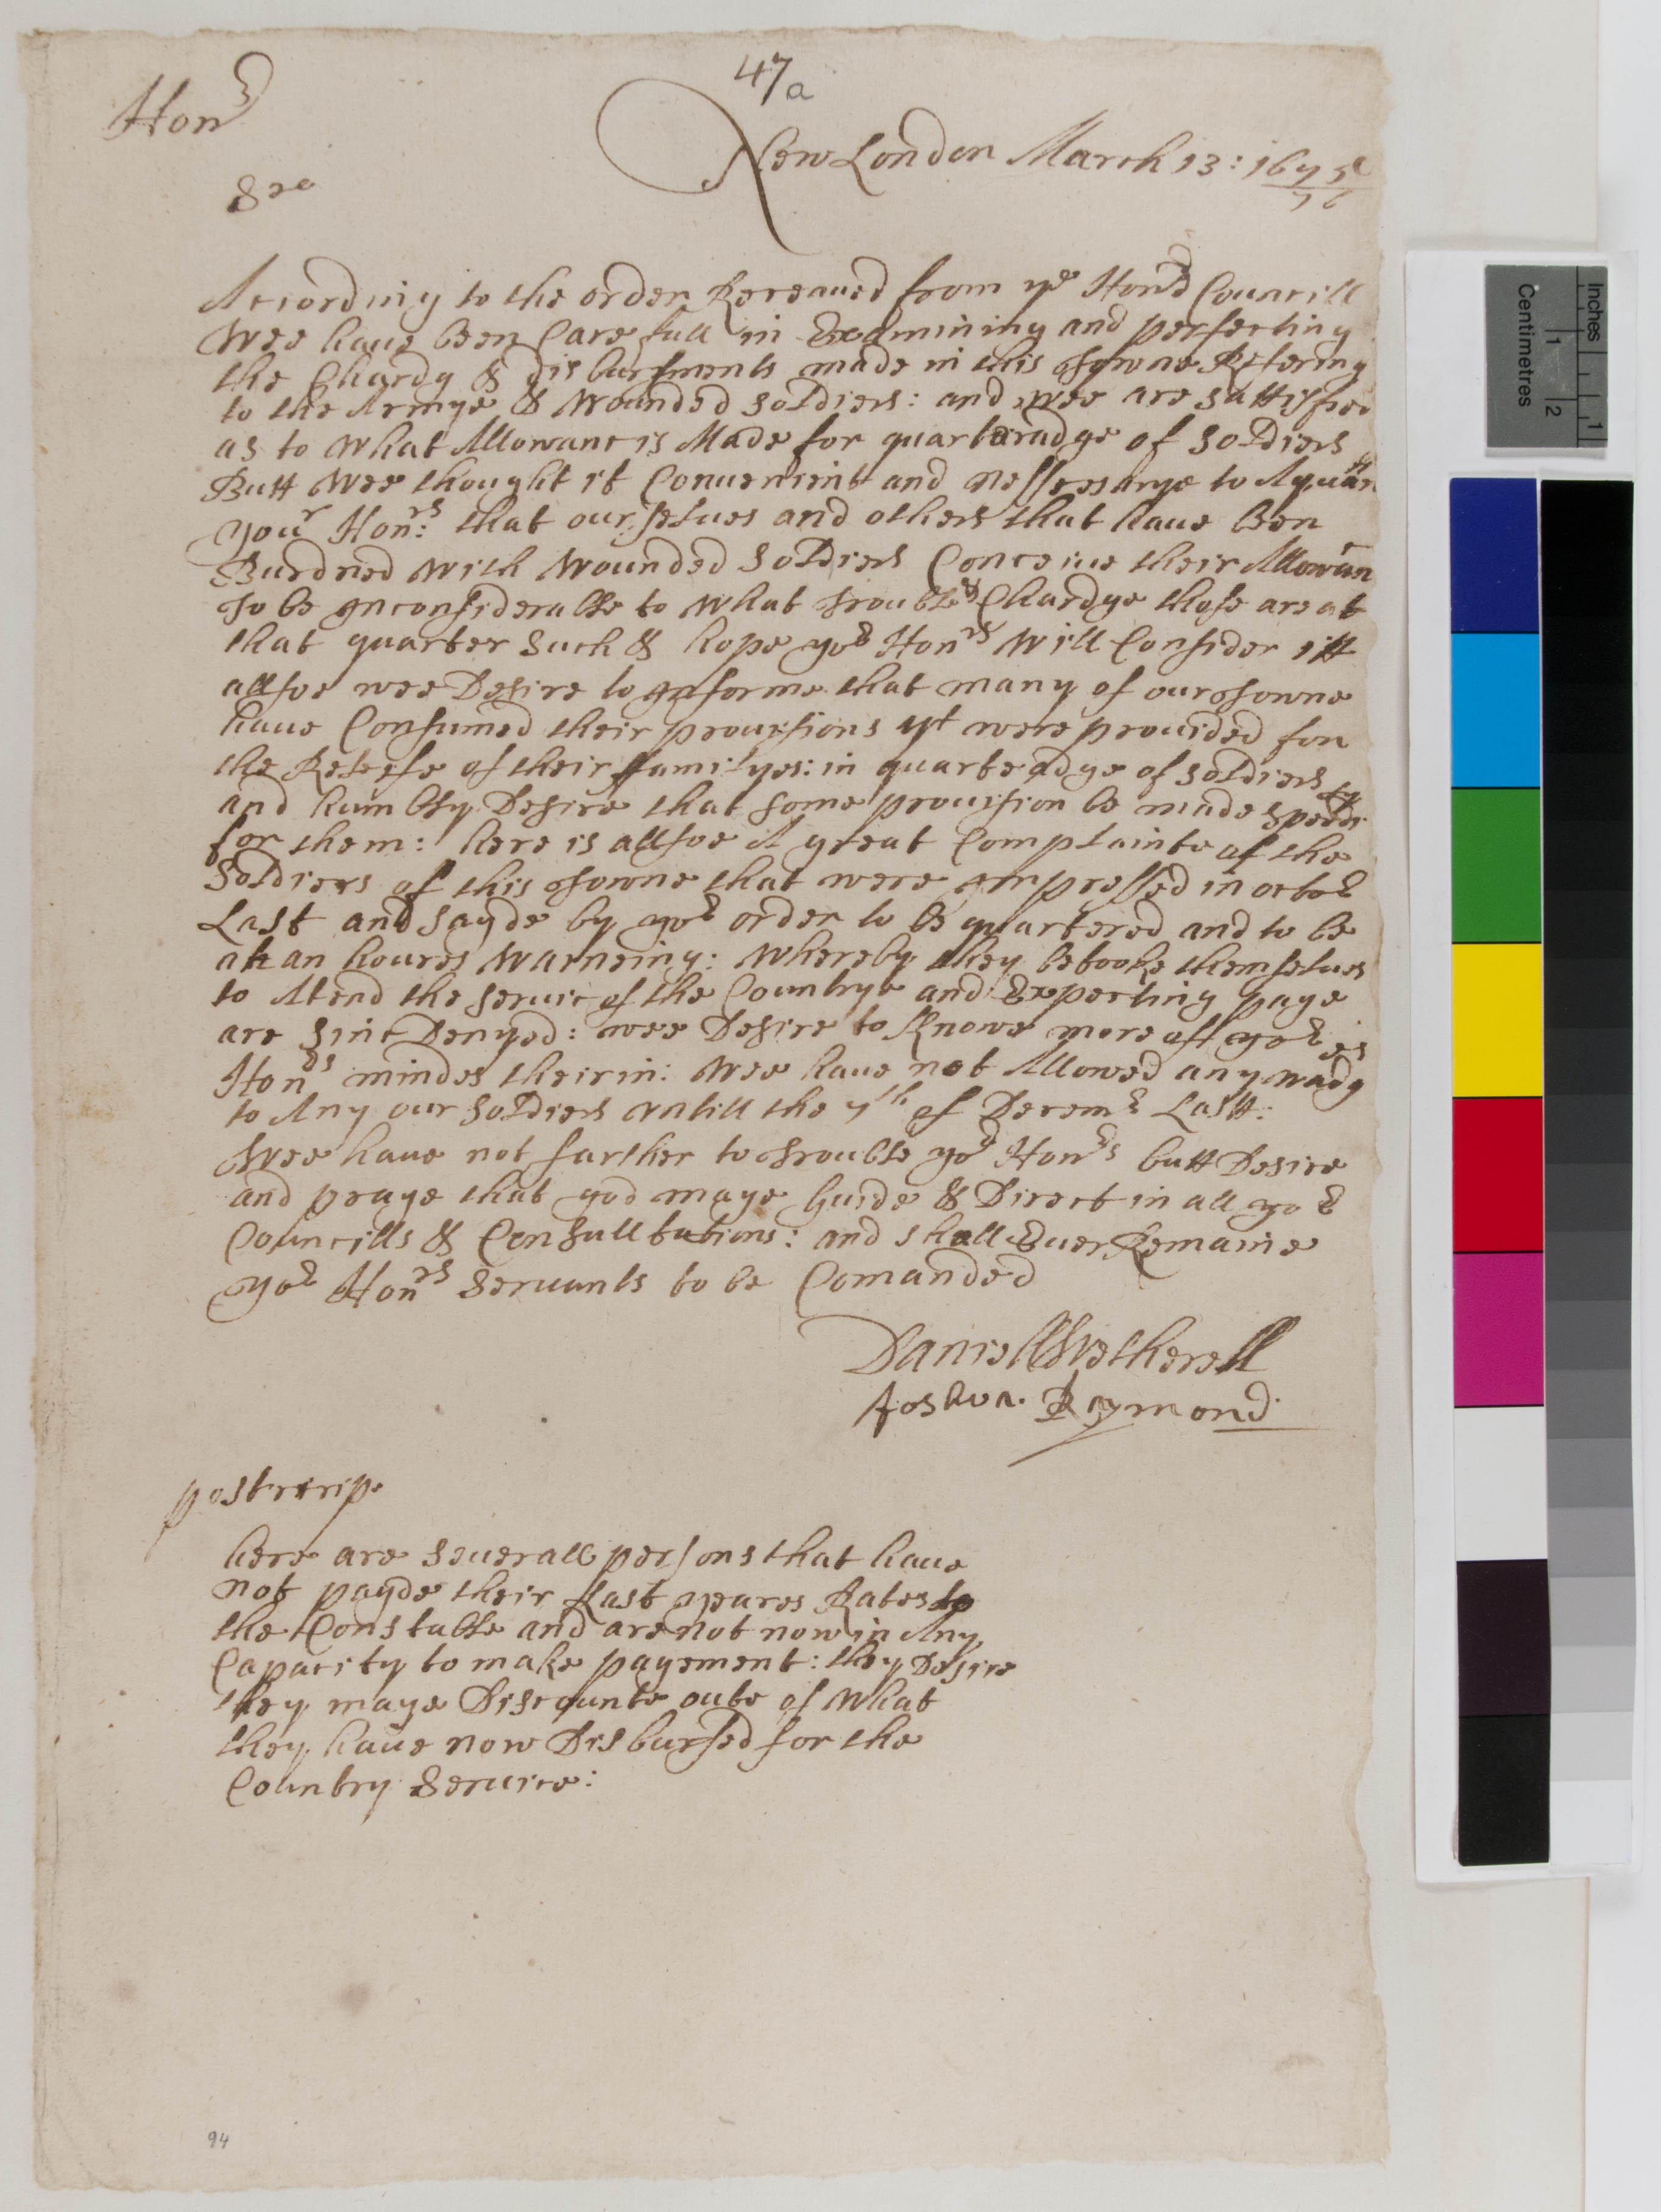 47a
Honrd
New London March 13: 1675/76
Srs
According to the order Receaued from ye Honrd Councill
Wee haue been Carefull in Examining and perfecting
the Chardg & disbursments made in this Towne Refering
to the Armye & Wounded Soldiers: and wee are sattisfied
as to What Allowanc is Made for quarteradge of Soldiers
Butt Wee thought it Conuenient and nessessarye to Aquant
your Honrs: that our selues and others that haue been
Burdned With Wounded Soldiers Conceiue their Allowanc
To be Inconsiderable to What Trouble & Chardge those are at
that quarter Such & hope yor Honrs Will Consider itt
allsoe wee Desire to Informe that many of our Towne
haue Consumed their prouissions yt were prouided for
the Releefe of their ffamilyes: in quarteadge of Soldiers
and humbly Desire that Some prouision be made Speedily
for them: here is allsoe A great Complainte of the
Soldiers of this Towne that were Impressed in octobr
Last and sayde by yor order to be quartered and to be
at an houres Warneing: Whereby they betooke themselues
to Atend the seruic of the Countrye and Expecting paye
are sinc Denyed: wee Desire to Knowe more of yor
Honrs mindes theirin: Wee haue not Allowed any wadges
to Any our Soldiers vntill the 7th of Decemr Last:
Wee haue not further to Trouble yor Honrs butt Desire
and praye that god maye Guide & Direct in all yor
Councills & Consulltations: and shall Euer Remaine
yor Honrs Seruants to be Comanded
Daniell Wetherell
Joshua Raymond
postscrip
here are seuerall persons that haue
not payde their Last yeares Rates to
the Constable and are not now in Any
Capacity to make payement: they Desire
they maye Discounte oute of What
they haue now Disbursed for the
Country Seruice:
94
Inches
1
Centimetres
1
2